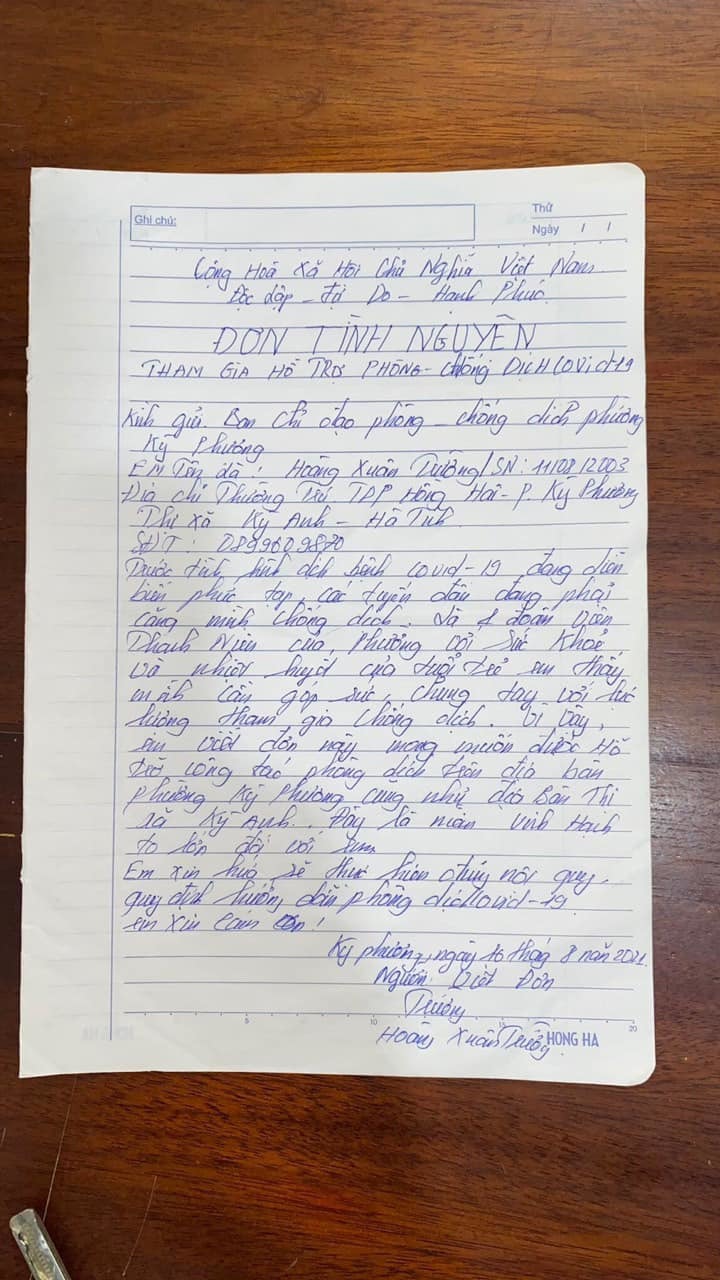 Ghi chú:
Thứ
Ngày / /
Cộng Hoà Xã Hội Chủ Nghĩa Việt Nam
Độc lập - Tự Do - Hạnh Phúc
ĐƠN TÌNH NGUYỆN
THAM GIA HỖ TRỢ PHÒNG - Chống DỊCH COVid-19
Kính gửi. Ban chỉ đạo phòng - chống dịch phường
Kỳ Phương
EM Tên là: Hoàng Xuân Trường / SN: 11/08/2003
Địa chỉ Thường Trú TDP Hồng Hải - P. Kỳ Phương
Thị xã Kỳ Anh - Hà Tĩnh
SĐT: 0899609870
Trước tình hình dịch bệnh covid-19 đang diễn
biến phức tạp, các tuyến đầu đang phải
căng mình chống dịch. Là 1 đoàn viên
Thanh Niên của, Phường với sức khoẻ
và nhiệt huyết của tuổi trẻ em thấy
mình cần góp sức, chung tay với lực
lượng tham gia chống dịch. Vì vậy,
em viết đơn này mong muốn được Hỗ
trợ công tác phòng dịch trên địa bàn
phường Kỳ Phương cũng như địa Bàn Thị
xã Kỳ Anh. Đây là niềm Vinh Hạnh
to lớn đối với em
Em xin hứa sẽ thực hiện đúng nội quy,
quy định hướng dẫn phòng dịch covid-19
em xin cảm ơn!
Kỳ phương, ngày 16 tháng 8 năm 2021
Người Viết Đơn
Trường
Hoàng Xuân Trường
5 10 15 20
HONG HA